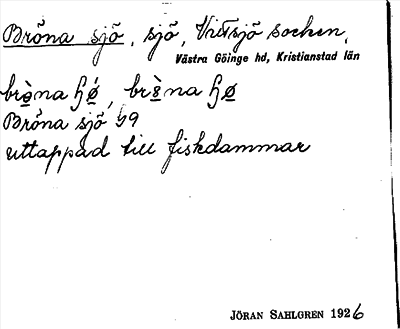 Bröna sjö, sjö, Vittsjö socken,
Västra Göinge hd, Kristianstad län
Bröna sjö
uttappad till fiskdammar
JÖRAN SAHLGREN 1926